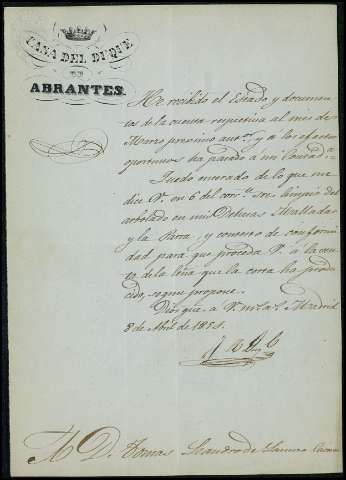 CASA DEL DUQUE
DE
ABRANTES
He recibido el Estado y documen-
tos de la cuenta respectiva al mes de
Marzo proximo ant.or, y a los efectos
oportunos ha pasado a mi Contad.a
Quedo enterado de lo que me
dice V. en 6 del corr.te sre limpia del
arbolado en mis Dehesas
y la Parra, y convengo de conformi-
dad para que proceda V. a la
de la leña que la corta ha produ-
cido, segun propone.
Dios gue. a V. m.s a.s Madrid
8 de Abril de 1851.
D. Tomas de